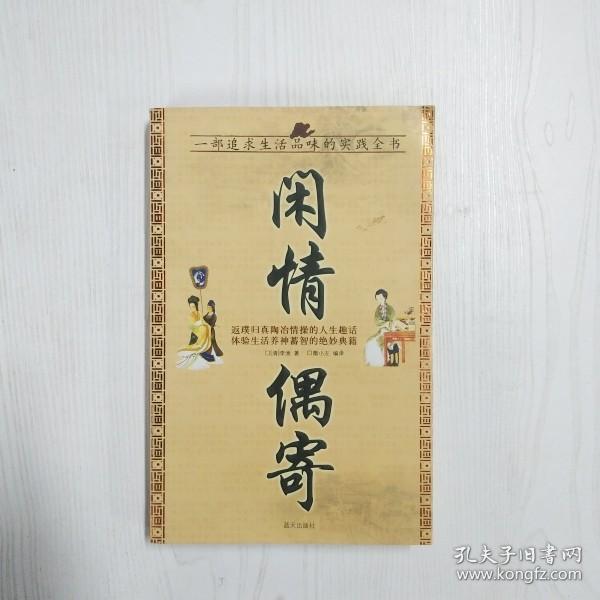 一部追求生活品味的实践全书
闲情
返璞归真陶冶情操的人生趣话
体验生活养神蓄智的绝妙典籍
李渔 著
小左 编译
偶寄
蓝天出版社
孔夫子旧书网
www.kongfz.com